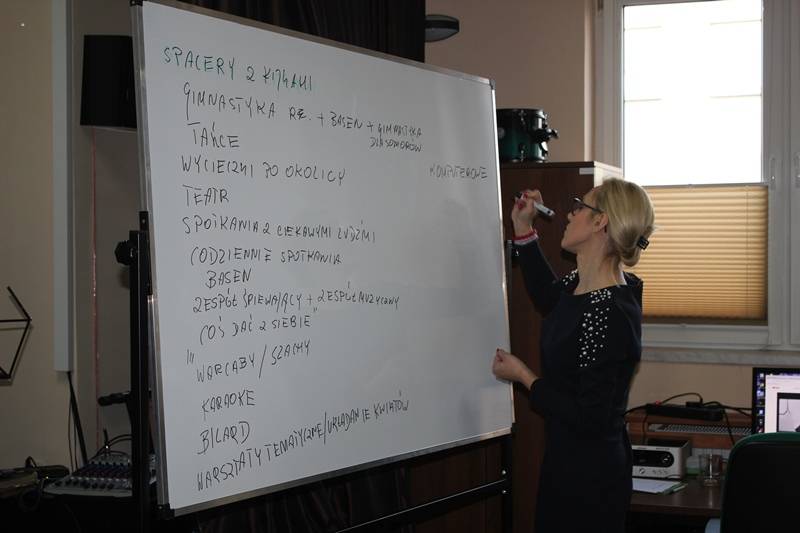 SPACERY Z KIJKAMI
GIMNASTYKA RE. + BASEN + GIMNASTYKA
DLA SENIORÓW
TAŃCE
KOMPUTEROWE
WYCIECZKI PO OKOLICY
TEATR
SPOTKANIA Z CIEKAWYMI LUDŹMI
CODZIENNIE SPOTKANIA
BASEN
ZESPÓŁ ŚPIEWAJĄCY + ZESPÓŁ MUZYCZNY
"COŚ DAĆ Z SIEBIE"
WARCABY / SZACHY
KARAOKE
BILARD
WARSZTATY TEMATYCZNE/UKŁADANIE KWIATÓW